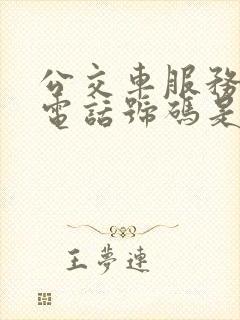 公交車服務
電話號碼是
王夢連